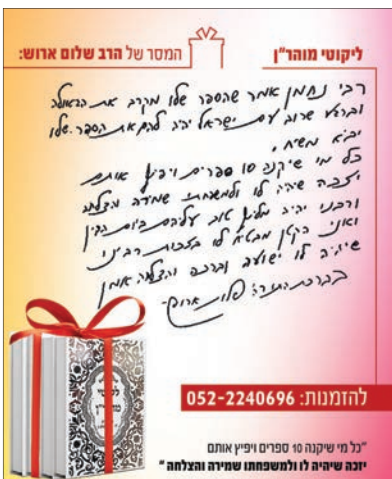 ליקוטי מוהר"ן
המסר של הרב שלום ארוש:
רבי נחמן אמר שהספר שלו מקרב את הגאולה
וברגע שרוב עם ישראל יהיה להם את הספר שלו
יבא משיח.
כל מי שיקנה 10 ספרים ויפיץ אותם
יזכה שיהיה לו ולמשפחתו שמירה והצלחה
ורבינו יהיה מליץ טוב עליהם ביום הדין
ואני הקטן מבטיח לו בזכות רבינו
שיהיה לו ישועה וברכה והצלחה אמן
בברכת התורה: שלום ארוש
להזמנות: 052-2240696
"כל מי שיקנה 10 ספרים ויפיץ אותם
יזכה שיהיה לו ולמשפחתו שמירה והצלחה"